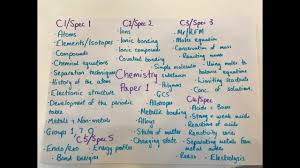 C1/Spec 1
- Atoms
- Elements/Isotopes
- Compounds
- Chemical equations
- Separation techniques
- History of the atom
- Electronic structure
- Development of the periodic table
- Metals + Non-metals
- Groups 1, 7, 0
C2/Spec 2
- Ions
- Ionic bonding
- Ionic compounds
- Covalent bonding
- Simple molecular substances
- Polymers
- GCS
- Metallic bonding
- Alloys
- States of matter
- Changing state
C3/Spec 3
- Mr/RFM
- Moles equation
- Conservation of mass
- Reacting masses
- Using moles to balance equations
- Limiting reactants
- Conc. of solutions
Chemistry
Paper 1
C4/Spec
- Acids + bases
- Strong + weak acids
- Reactions of acids
- Reactivity series
- Separating metals from metal oxides
- Redox
- Electrolysis
C5/Spec 5
- Endo/Exo
- Energy profile
- Bond energies